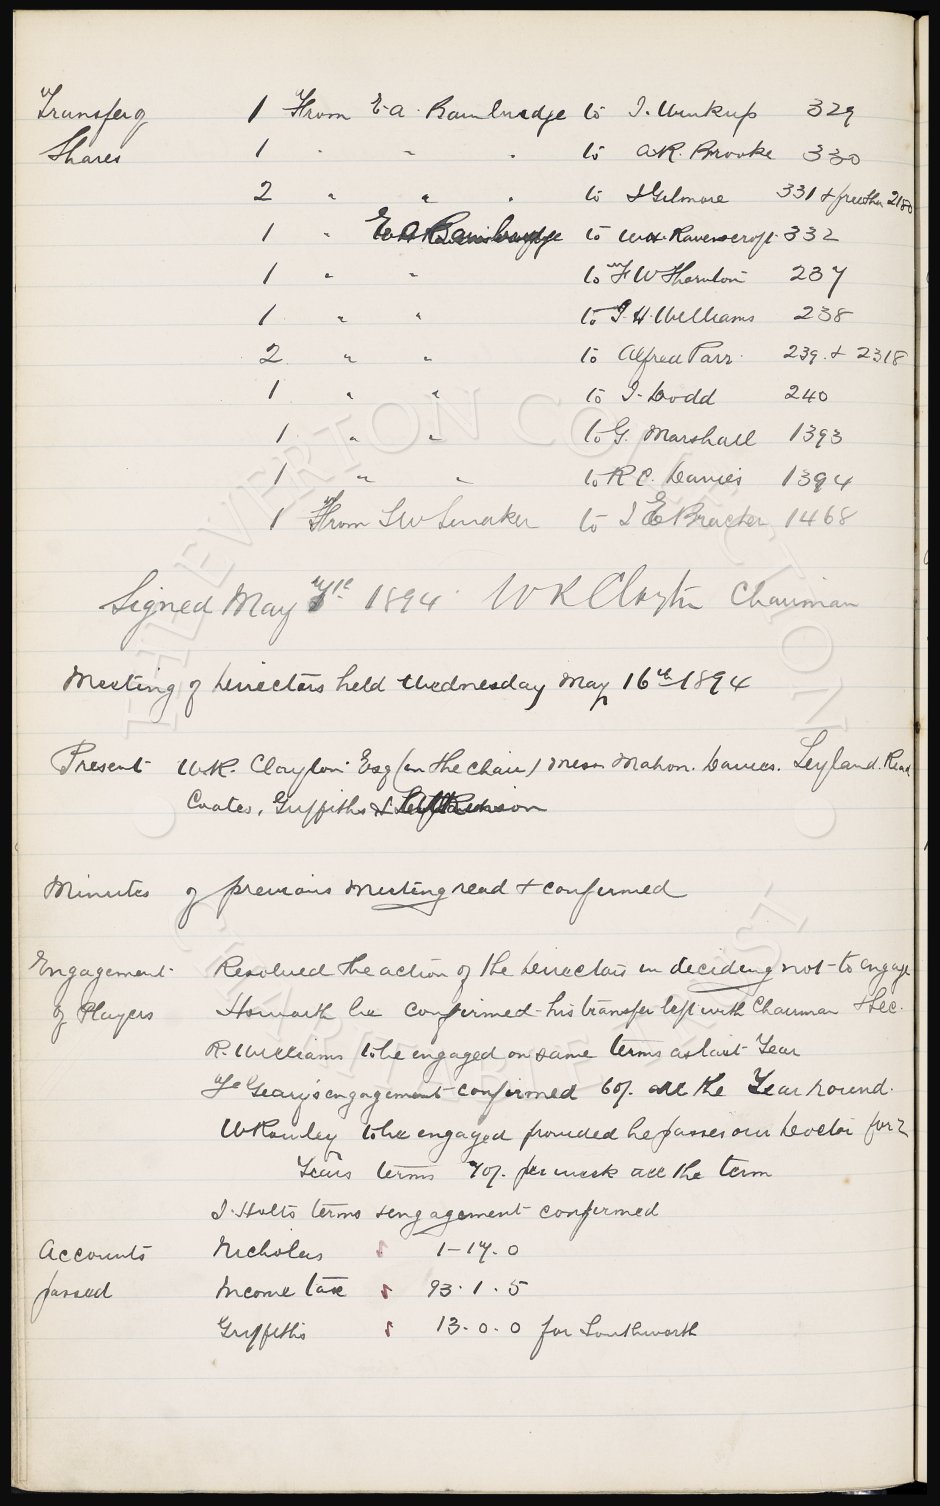 Transfer of 1 From E.A. Bainbridge to J. Winkup 329
Shares 1 " " " to A.R. Brooke 330
2 " " " to J Gilmore 331 + further 2180
1 " to W.H. Ravenscroft 332
1 " " to F W Thornton 237
1 " " to J.H. Williams 238
2 " " to Alfred Parr 239 + 2318
1 " " to J. Dodd 240
1 " " to G. Marshall 1393
1 " " to R C. Davies 1394
1 From to J E Bracher 1468
Signed May 1894 W R Clayton Chairman
Meeting of Directors held Wednesday May 16th 1894
Present W.R. Clayton Esq (in the chair) Messrs Mahon. Davies. Leyland. Read
Coates. Griffiths &
Minutes of previous meeting read + confirmed
Engagement Resolved the action of the Directors in deciding not to engage
of Players Howarth be confirmed his transfer left with Chairman + Sec.
R. Williams to be engaged on same terms as last Year
F Geary's engagement confirmed 60/- all the Year round.
W Rowley to be engaged provided he passes our Doctor for 2
Years terms 70/- per week all the term
J. Holts terms & engagement confirmed
Accounts Nicholas 1-17.0
passed Income tax 93.1.5
Griffiths 13.0.0 for Southworth
THE EVERTON COLLECTION
CHARITABLE TRUST